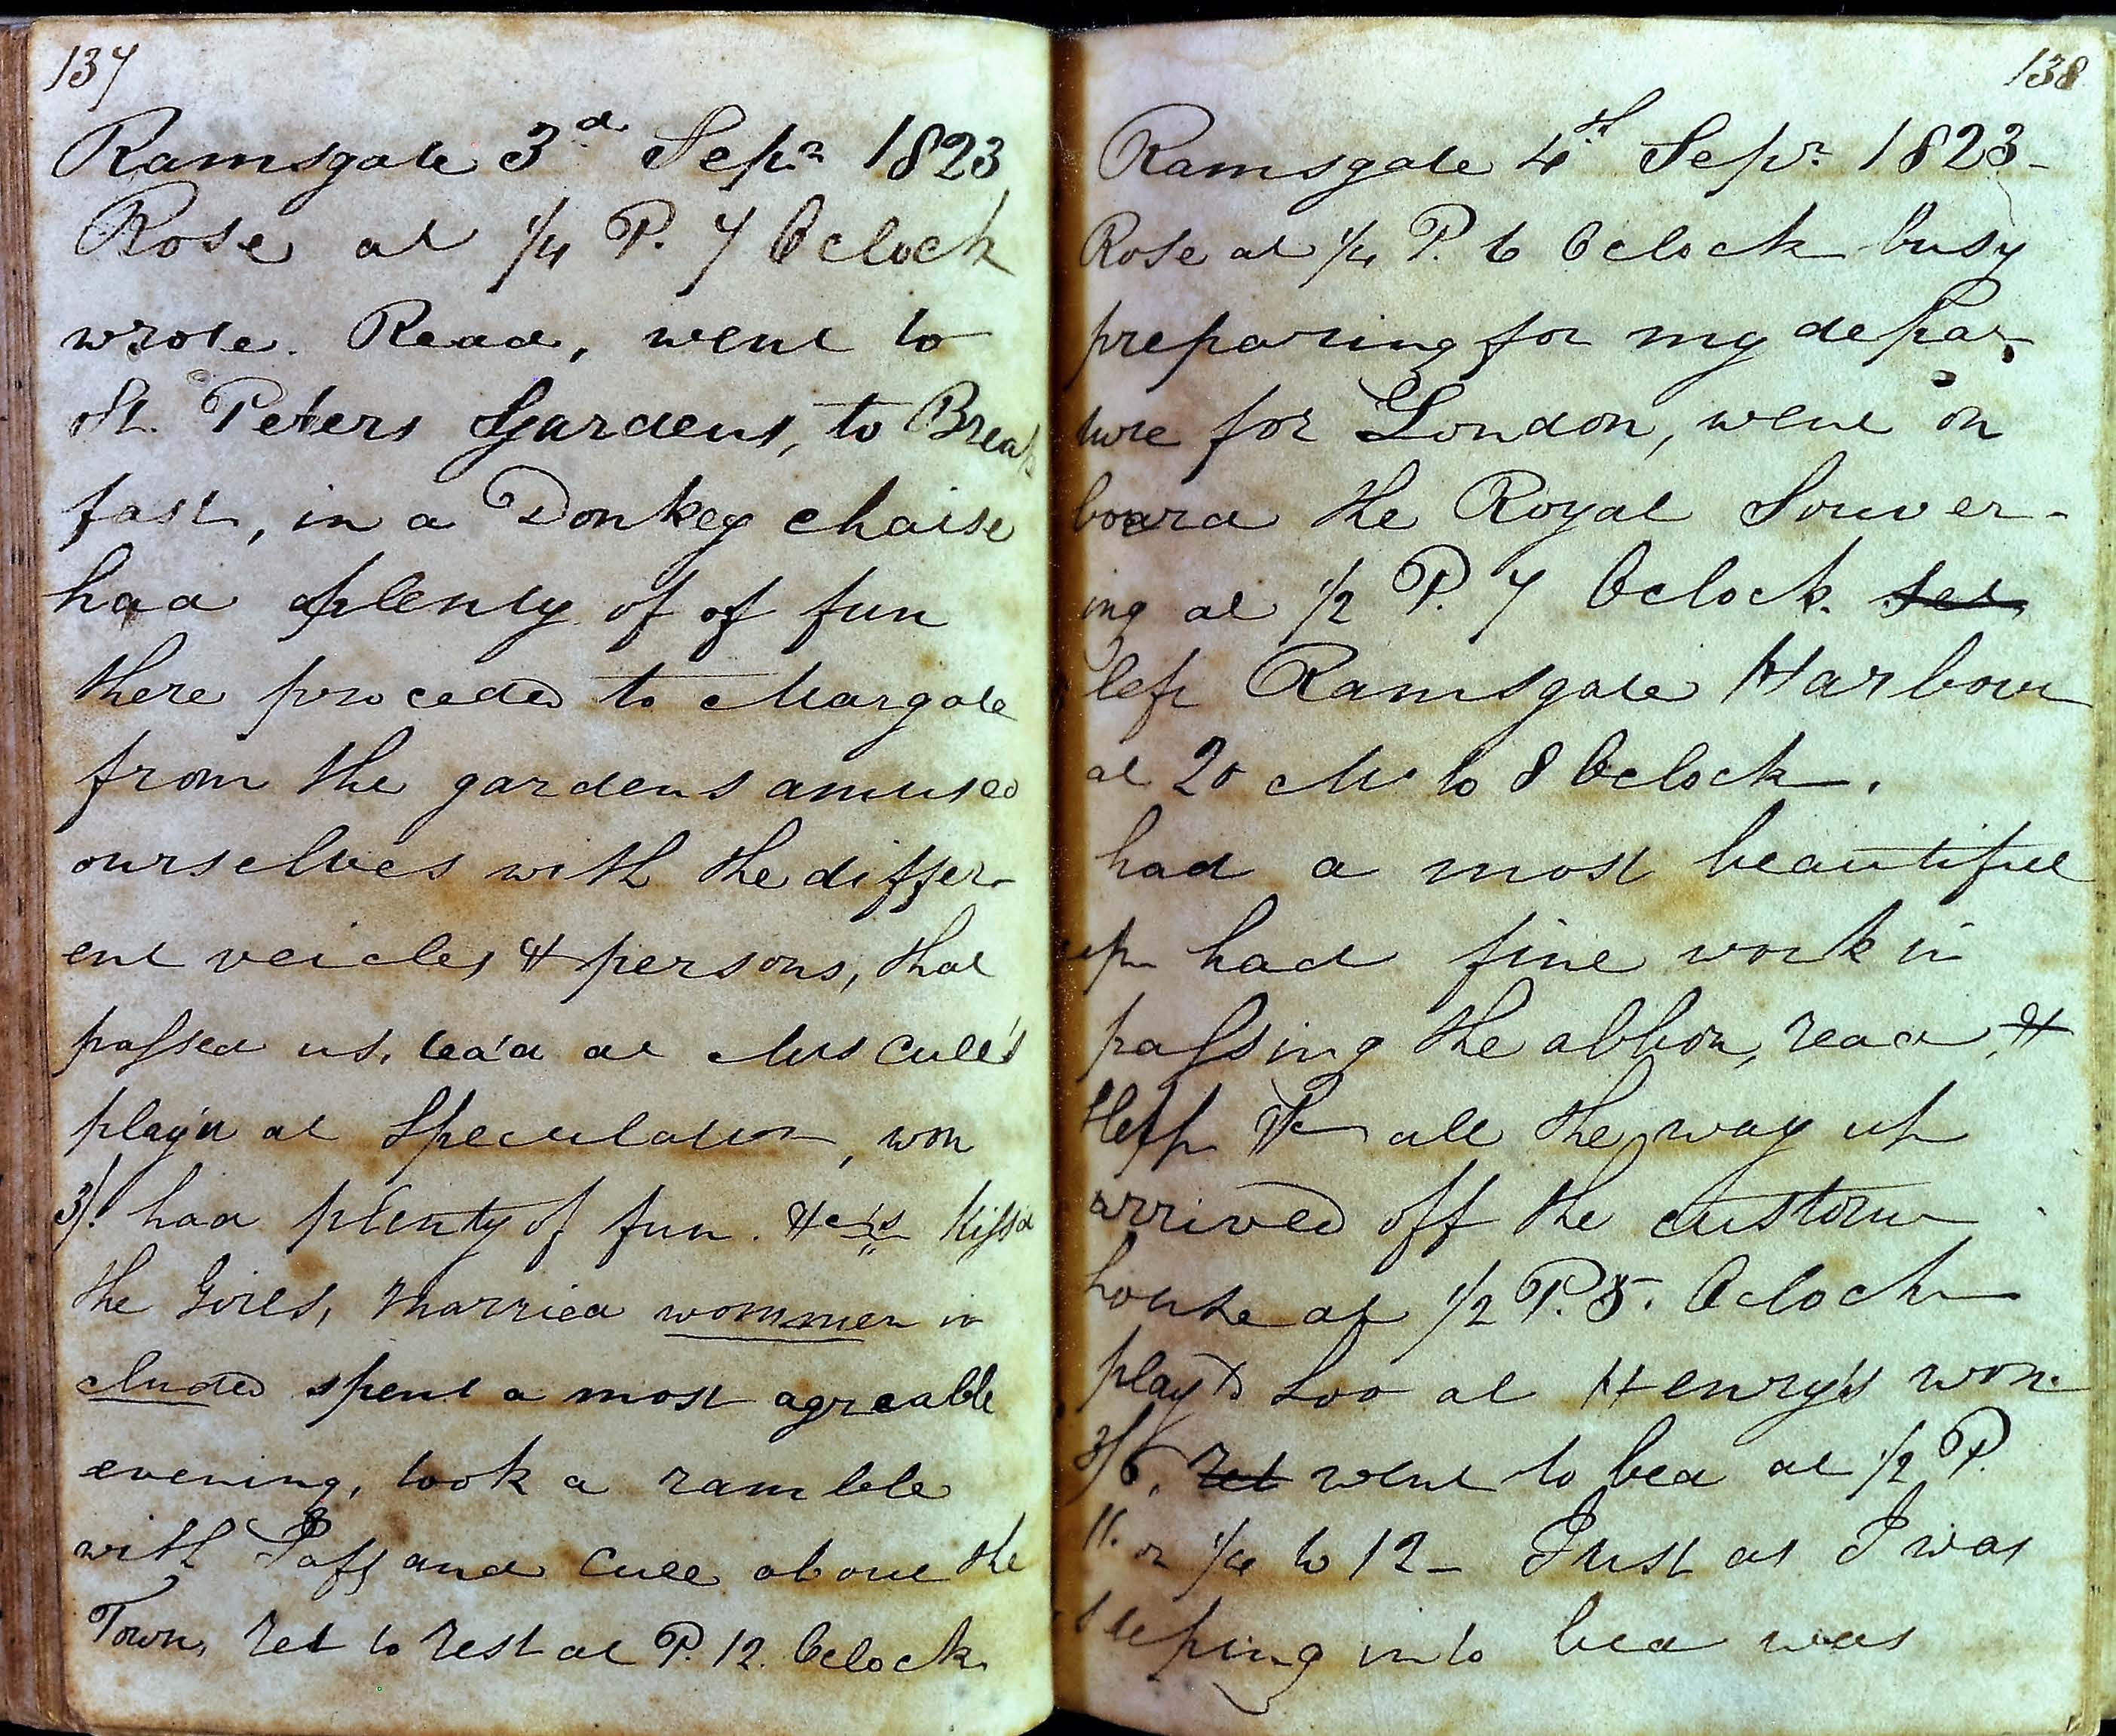 137
Ramsgate 3d Sepr 1823
Rose at 1/4 P. 7 Oclock
wrote. Read, went to
St. Peters Gardens, to Break
fast, in a Donkey chaise
had plenty of of fun
there proceded to Margate
from the gardens amused
ourselves with the differ-
ent veicles & persons, that
passed us. tea'd at Mrs Cull's
play'd at Speculation, won
3/. had plenty of fun. Kiss'd
the Girls, married wommen in
cluded spent a most agreable
evening, took a ramble
with and Cull about the
Town, ret to rest at P. 12. Oclock
138
Ramsgate 4th Sepr 1823-
Rose at 1/4 P. 6 Oclock busy
preparing for my depar
ture for London, went on
board the Royal Souver-
ing at 1/2 P. 7 Oclock. set
left Ramsgate Harbour
at 20 M. to 8 Oclock.
had a most beautiful
up had fine work in
passing the albion, read &
slept all the way up
arrived off the custom
house at 1/2 P. 5. Oclock
play'd Loo at Henry's won
3/6. ret went to bed at 1/2 P.
11. or 1/4 to 12- Just as I was
steping into bed was